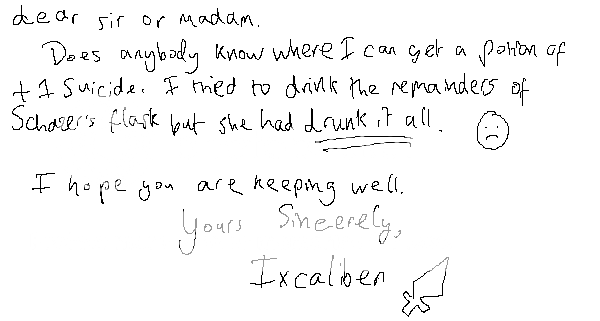 dear sir or madam.
Does anybody know where I can get a potion of
+1 Suicide. I tried to drink the remainders of
Schazer's flask but she had drunk it all.
I hope you are keeping well.
Yours Sincerely,
Ixcaliber